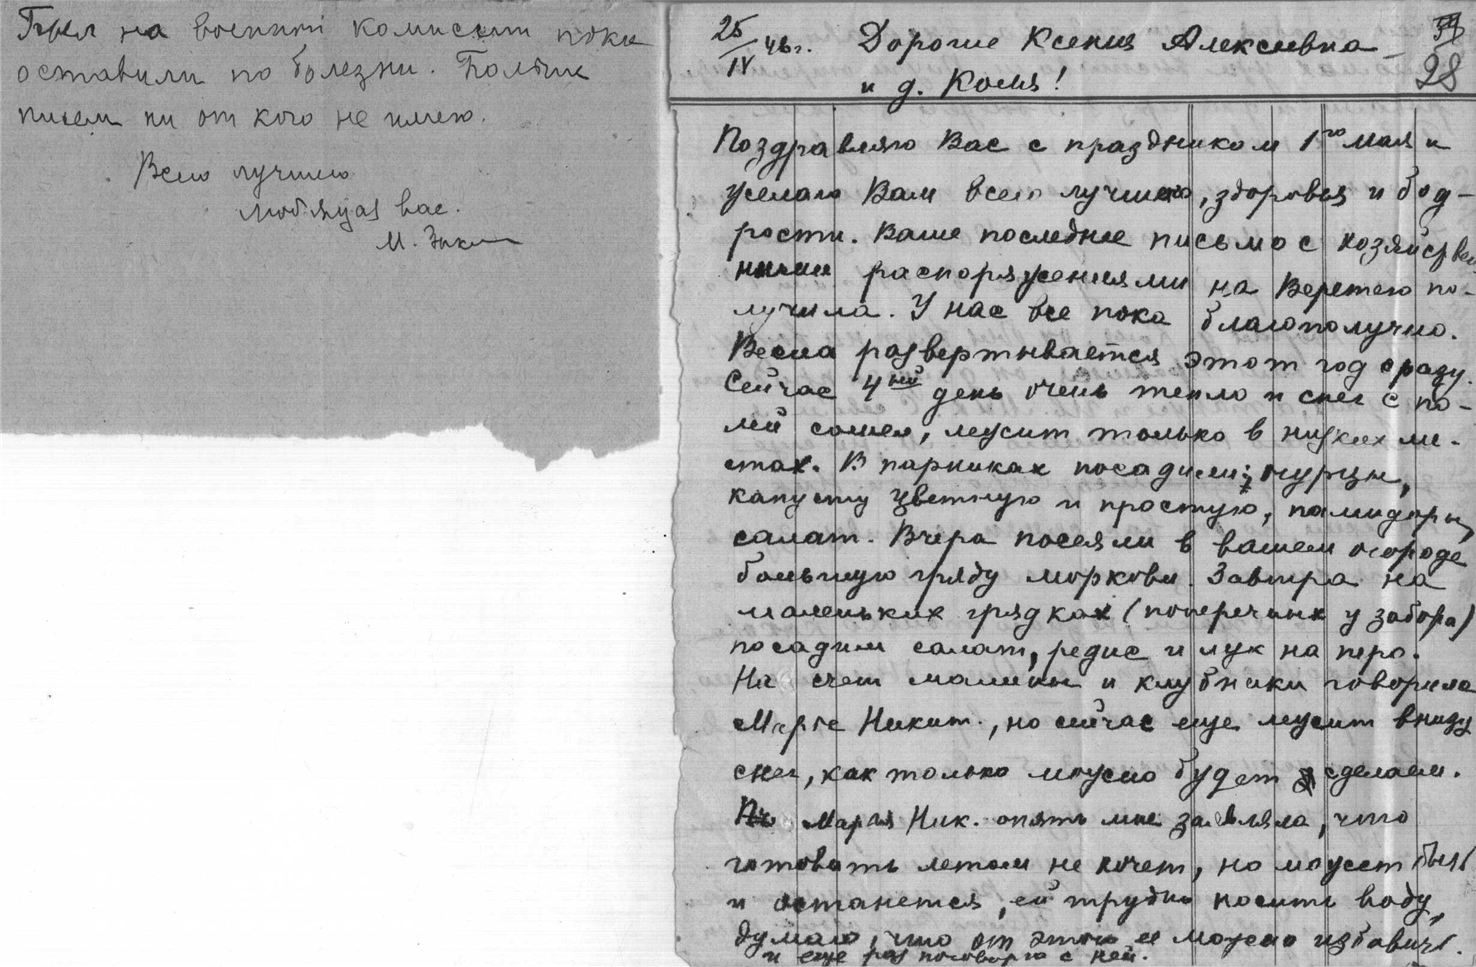 Был на военной комисии пока
оставили по болезни. Больше
писем ни от кого не имею.
Всего лучшего
любящая вас.
М.
25/IV 46г. Дорогие Ксения Алексеевна
и д. Коля!
28
Поздравляю Вас с праздником 1го мая и
желаю Вам всего лучшего, здоровья и бод-
рости. Ваше последнее письмо с хозяйствен
ными распоряжениями на Веретею по-
лучила. У нас все пока благополучно.
Весна развертывается этот год сразу.
Сейчас 4ый день очень тепло и снег с по-
лей сошел, лежит только в низких ме-
стах. В парниках посадили; огурцы,
капусту цветную и простую, памидоры,
салат. Вчера посеяли в вашем огороде
большую гряду моркови. Завтра на
маленьких грядках (поперечных у забора)
посадим салат, редис и лук на перо.
На счет малины и клубники говорила
Марье Никит., но сейчас еще лежит внизу
снег, как только можно будет сделаем.
Марья Ник. опять мне заявляла, что
готовить летом не хочет, но может быть
и останется, ей трудно носить воду,
думаю, что от этого ее можно избавить.
и еще раз поговорю с ней.